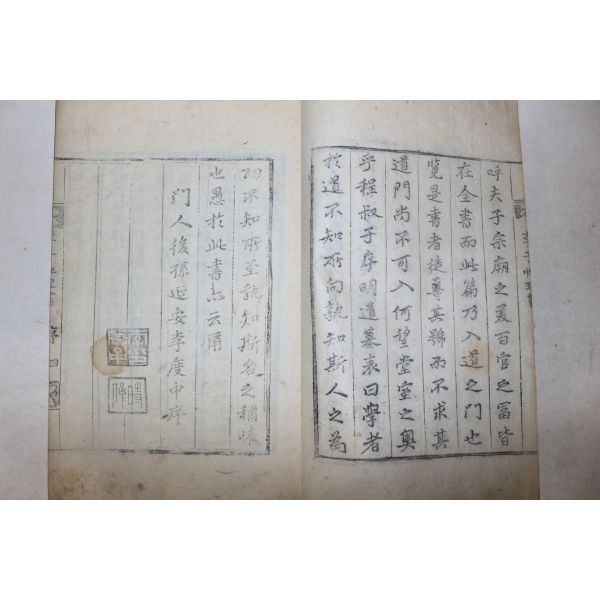 呼夫子宗廟之美百官之冨皆
在全書而此篇乃入道之門也
覧是書者徒尊其號而不求其
道門尚不可入何望堂室之奧
乎程叔子序明道墓表曰學者
於道不知所向孰知斯人之為
功不知所至孰知斯名之稱情
也愚於此書亦云爾
門人後孫延安李度中序
序
四